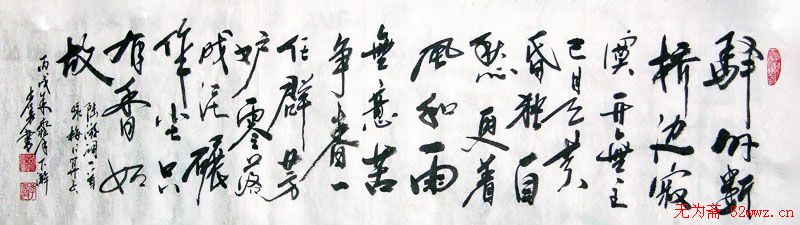 驿外断
桥边寂
寞开無主
已是黄
昏独自
愁更着
風和雨
無意苦
争春一
任群芳
妒零落
成泥碾
作尘只
有香如
故
陆游词一首
咏梅卜算子
丙戌
书
无为斋 52wwz.cn